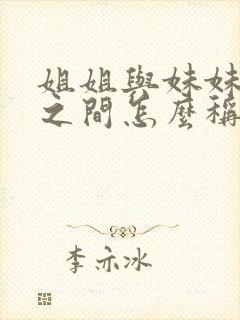 姐姐與妹妹
之間怎麼稱
李亦冰